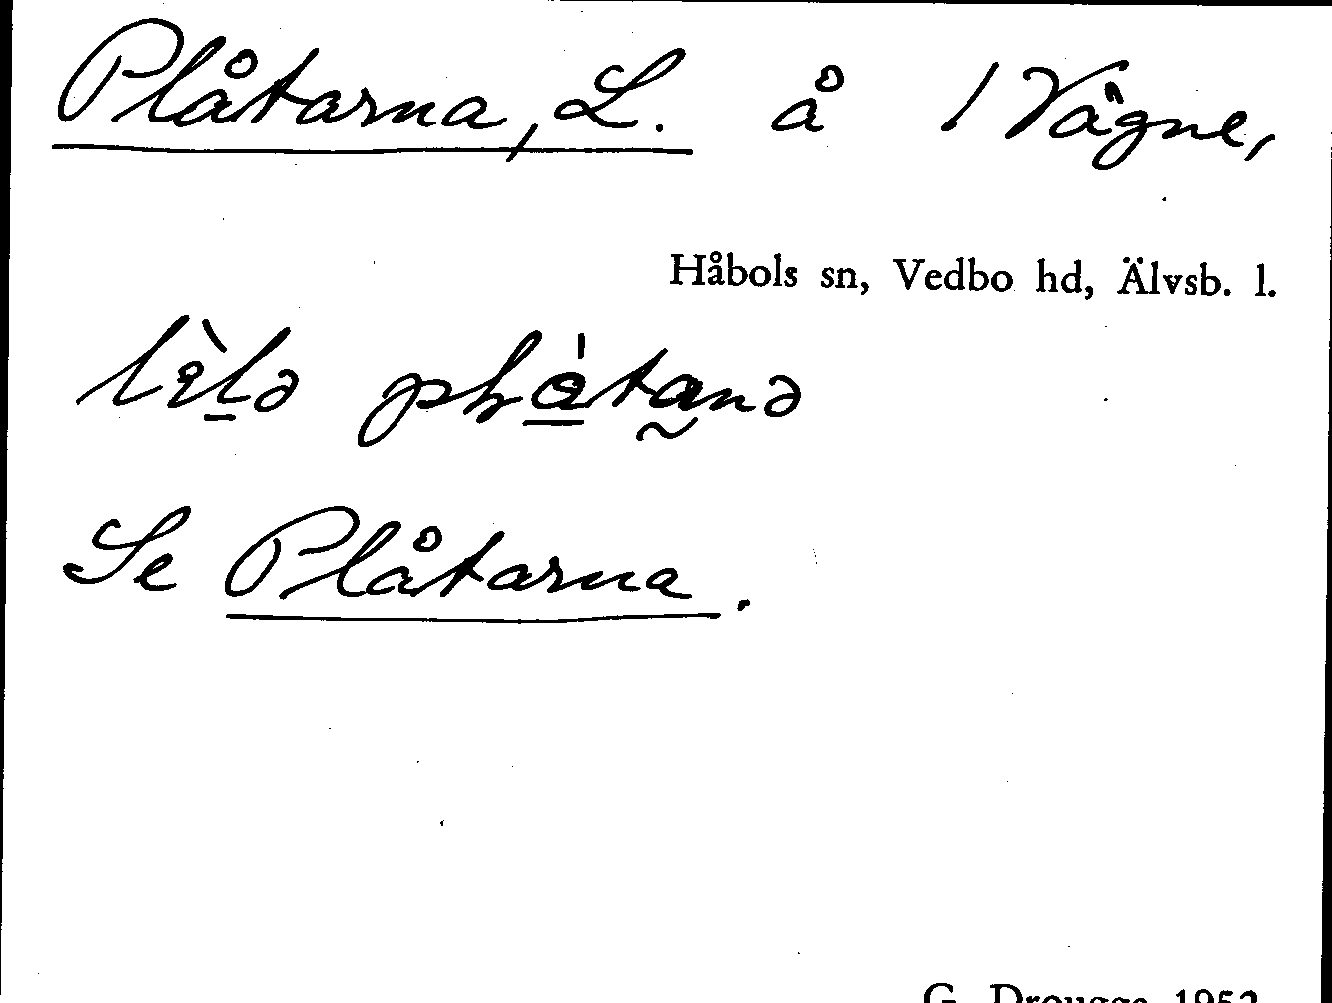 Plåtarna, L. å 1 Vägne,
Håbols sn, Vedbo hd, Älvsb. l.
Se Plåtarna.
G. Drougge 1952